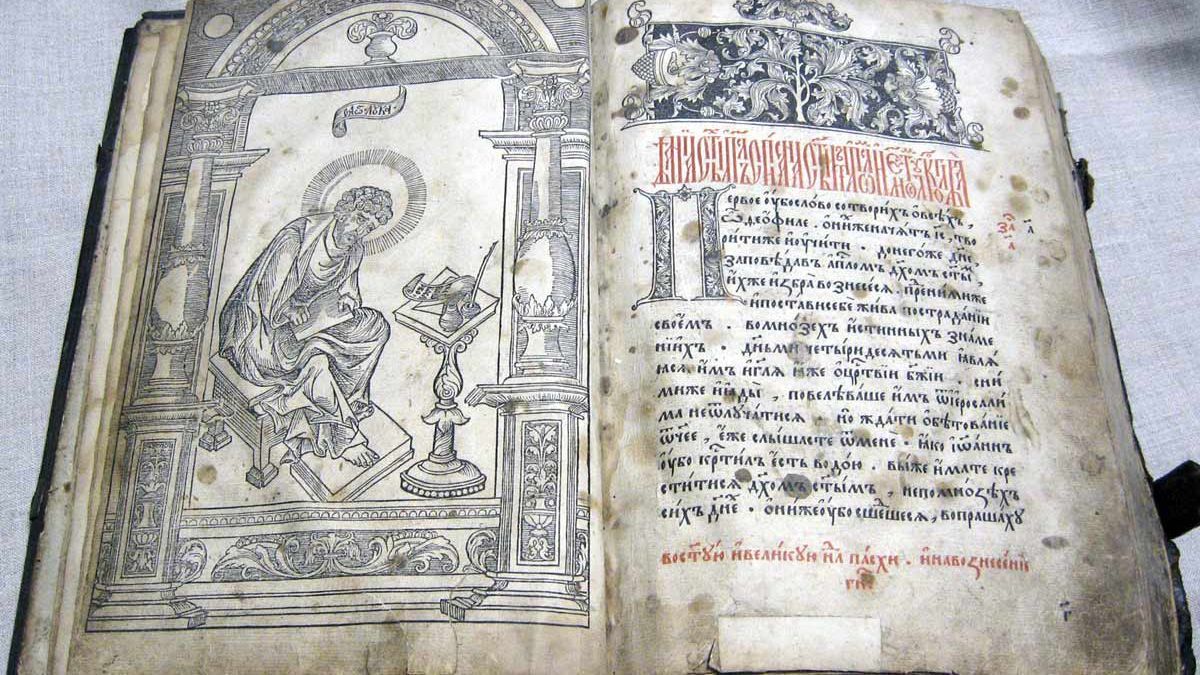 Первое ѹбо слово сотворихъ ѡвсѣхъ,
ѽ деѡфиле . ѡнихже начатъ і҃с, тво
рити же и учити . донегоже дн҃е,
заповѣдавъ апⷭ҇ломъ дх҃омъ ст҃ы
ихже избра вознесеся . пренимиже
и постави себе жива по страдании
своемъ . во мнозехъ истинныхъ зname
ниихъ . дн҃ьми четыридесятьми ꙗвлѧ
ꙗсѧ имъ и гл҃ѧ ꙗже ѡ црⷭ҇твии бж҃ии . сни
миже и ꙗды , повелѣваше имъ ѿ иерⷭ҇али
ма не ѿлучатисѧ . но ждати ѡбѣтование
ѡч҃ее , еже слышасте ѿ мене . ꙗко иѡаннъ
ѹбо крⷭ҇тилъ есть водою . вы же имате кре
ститисѧ дх҃омъ ст҃ымъ , не по мнозѣхъ
сихъ дн҃е . ѡниже ѹбо сшедшесѧ , вопрашаху
во ст҃ую и великую нⷣлю пасхи . и на вознесение
гⷭ҇не